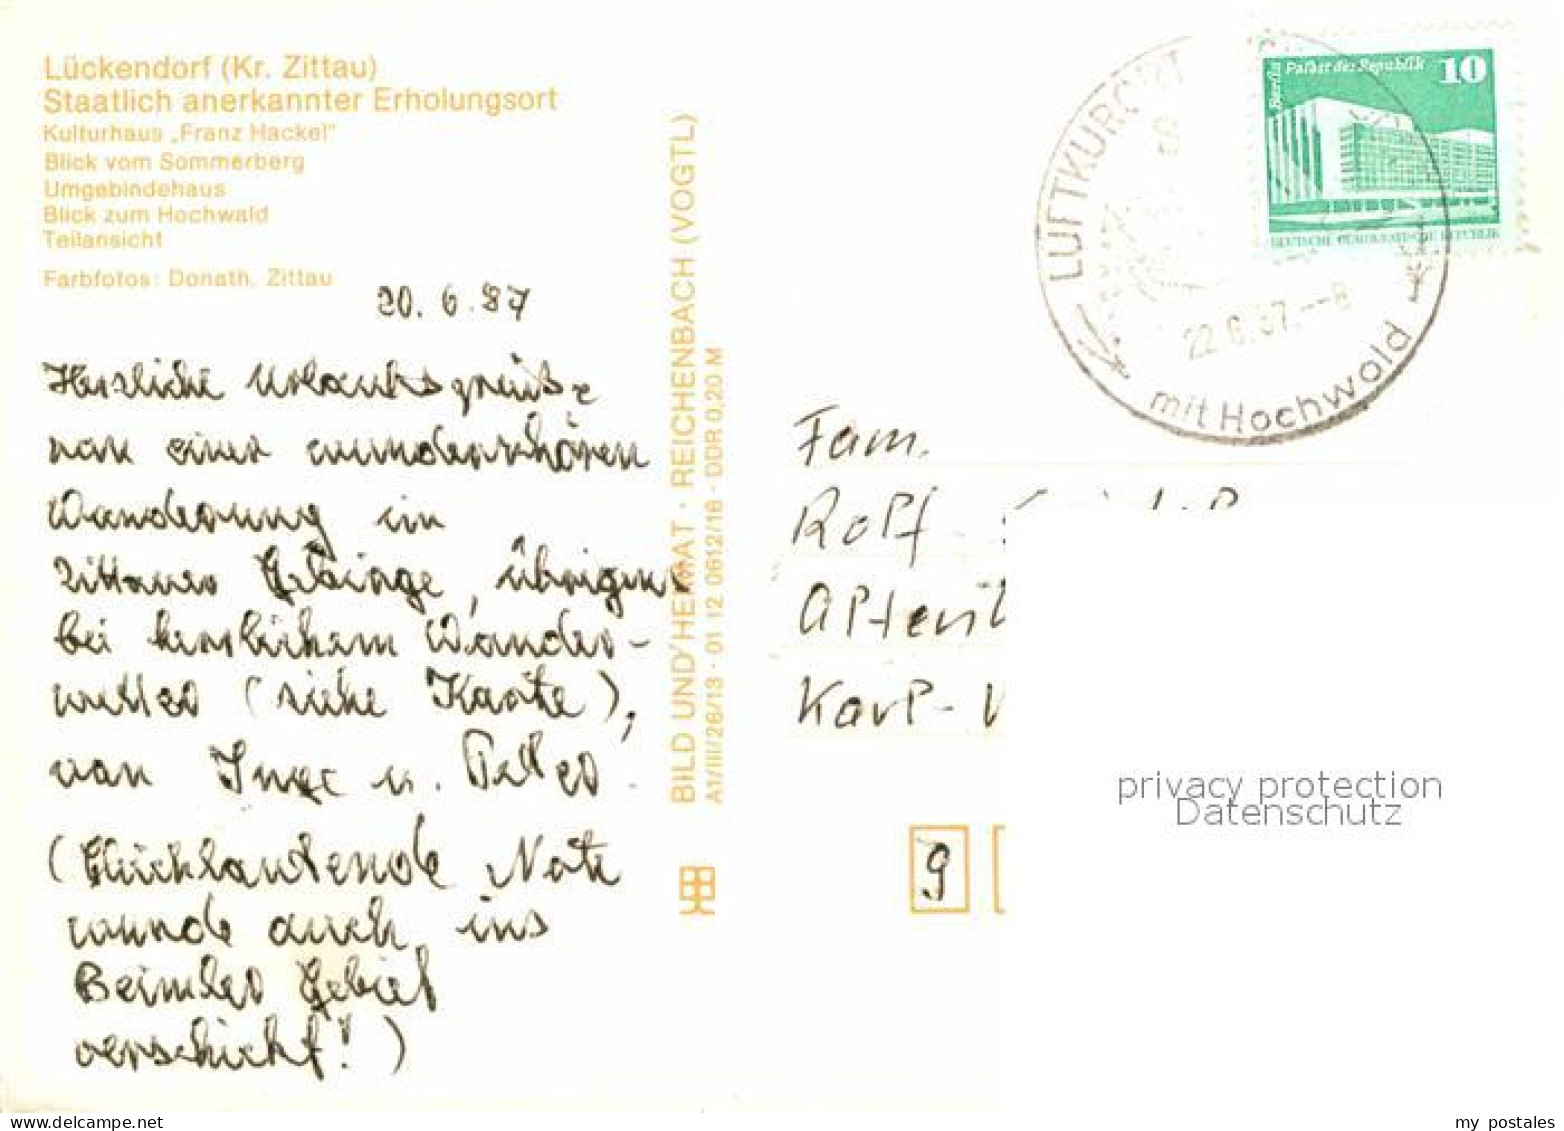 Lückendorf (Kr. Zittau)
Staatlich anerkannter Erholungsort
Kulturhaus „Franz Hackel"
Blick vom Sommerberg
Umgebindehaus
Blick zum Hochwald
Teilansicht
Farbfotos: Donath, Zittau
20. 6. 87
Herzliche Urlaubsgrüße
von einer wunderschönen
Wanderung im
Zittauer Gebirge, übrigens
bei herrlichem Wander-
wetter (siehe Karte),
von Inge u.
(Gleichlautende Note
wurde auch ins
Beimler Gebiet
verschickt!)
BILD UND HEIMAT · REICHENBACH (VOGTL)
A1/III/26/13 · 01 12 0612/16 · DDR 0,20 M
LUFTKURORT
mit Hochwald
22.6.87.--8
Berlin Palast der Republik 10
DEUTSCHE DEMOKRATISCHE REPUBLIK
Fam.
Rolf
Karl-
9
privacy protection
Datenschutz
my postales